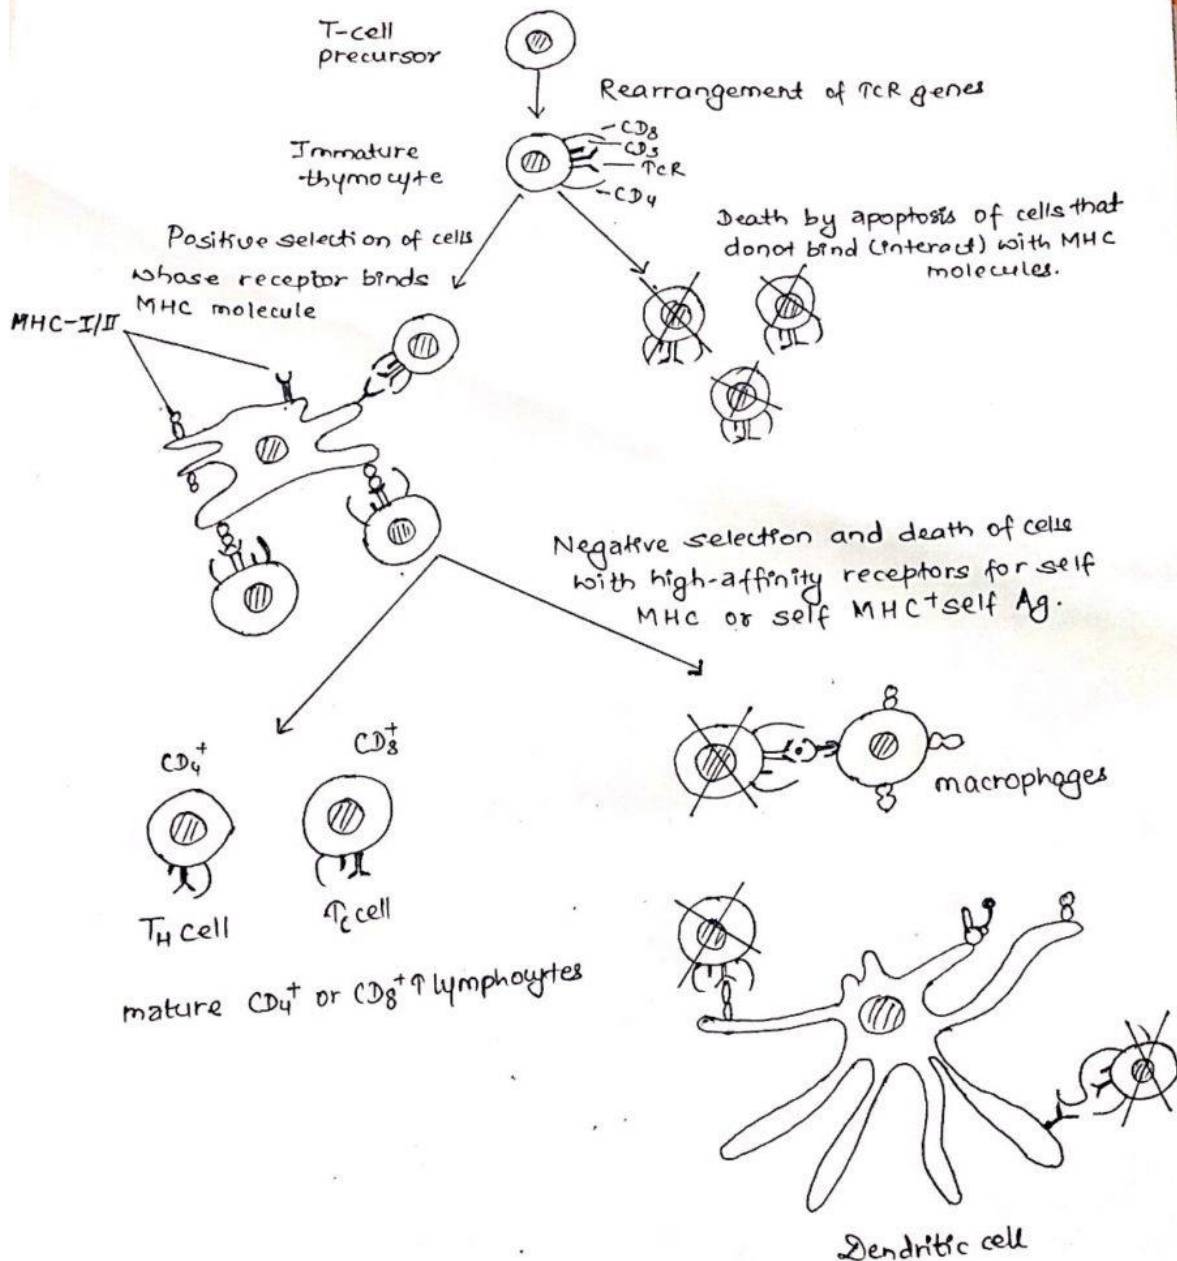 T-cell
precursor
Rearrangement of TCR genes
Immature
thymocyte
CD8
CD3
TCR
CD4
Positive selection of cells
whose receptor binds
MHC molecule
Death by apoptosis of cells that
donot bind (interact) with MHC
molecules.
MHC-I/II
Negative selection and death of cells
with high-affinity receptors for self
MHC or self MHC+self Ag.
CD4+
CD8+
macrophages
TH cell
TC cell
mature CD4+ or CD8+ T lymphocytes
Dendritic cell